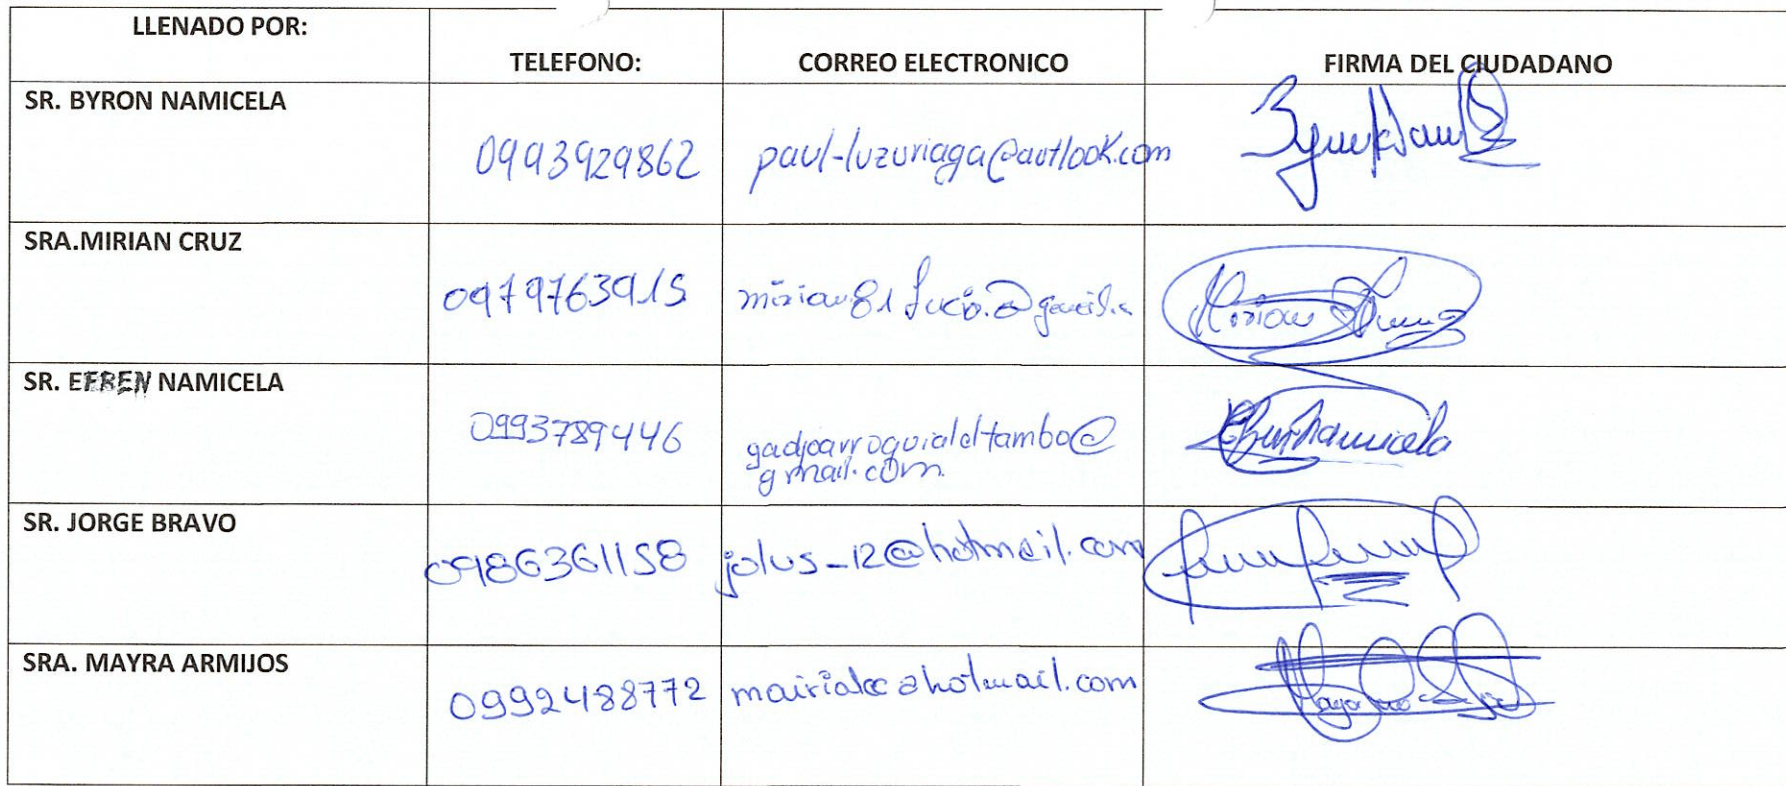 LLENADO POR:
TELEFONO:
CORREO ELECTRONICO
FIRMA DEL CIUDADANO
SR. BYRON NAMICELA
0993929862
paul-luzuriaga@outlook.com
SRA.MIRIAN CRUZ
0979763915
SR. EFREN NAMICELA
0993789446
gadparroquialeltambo@
gmail.com
SR. JORGE BRAVO
0986361158
jolus_12@hotmail.com
SRA. MAYRA ARMIJOS
0992488772